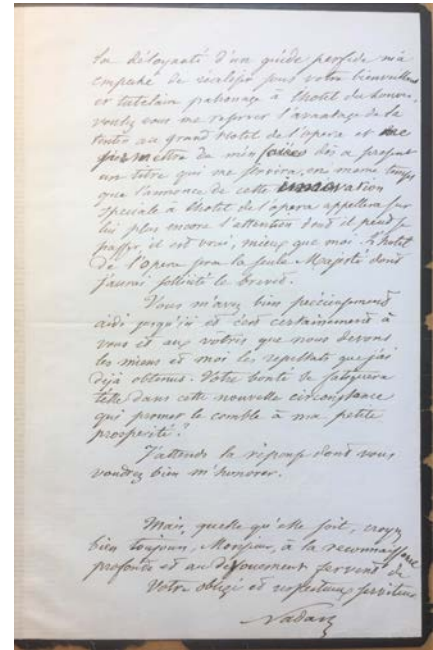 la déloyauté d'un guide perfide m'a
empeché de réaliser sous votre bienveillant
et tutelaire patronage à l'hotel du Louvre,
voulez vous me reserver l'avantage de le
tenter au grand Hotel de l'opera et me
permettre de m'en faire dès a present
un titre qui me servira, en meme temps
que l'annonce de cette innovation
speciale à l'hotel de l'opera appellera sur
lui plus encore l'attention dont il peut se
passer, il est vrai, mieux que moi. L'hotel
de l'Opera sera la seule Majesté dont
j'aurai sollicité le brevet.
Vous m'avez bien précieusement
aidé jusqu'ici et c'est certainement à
vous et aux votres que nous devons
les miens et moi les resultats que j'ai
déjà obtenus. Votre bonté se fatiguera
t'elle dans cette nouvelle circonstance
qui promet le comble à ma petite
prosperité?
J'attends la réponse dont vous
voudrez bien m'honorer.
Mais, quelle qu'elle soit, croyez
bien toujours, Monsieur, à la reconnaissance
profonde et au devouement fervent de
Votre obligé et respectueux serviteur
Nadar